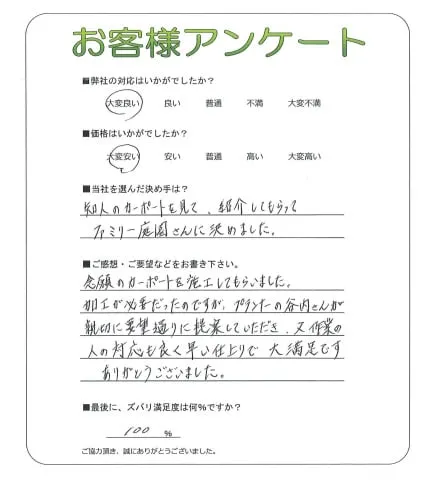 お客様アンケート
■弊社の対応はいかがでしたか?
大変良い 良い 普通 不満 大変不満
■価格はいかがでしたか?
大変安い 安い 普通 高い 大変高い
■当社を選んだ決め手は?
知人のカーポートを見て、紹介してもらって
ファミリー庭園さんに決めました。
■ご感想・ご要望などをお書き下さい。
念願のカーポートを施工してもらいました。
加工が必要だったのですが、プランナーの谷内さんが
親切に要望通りに提案していただき、又作業の
人の対応も良く早い仕上りで 大満足です
ありがとうございました。
■最後に、ズバリ満足度は何%ですか?
100 %
ご協力頂き、誠にありがとうございました。